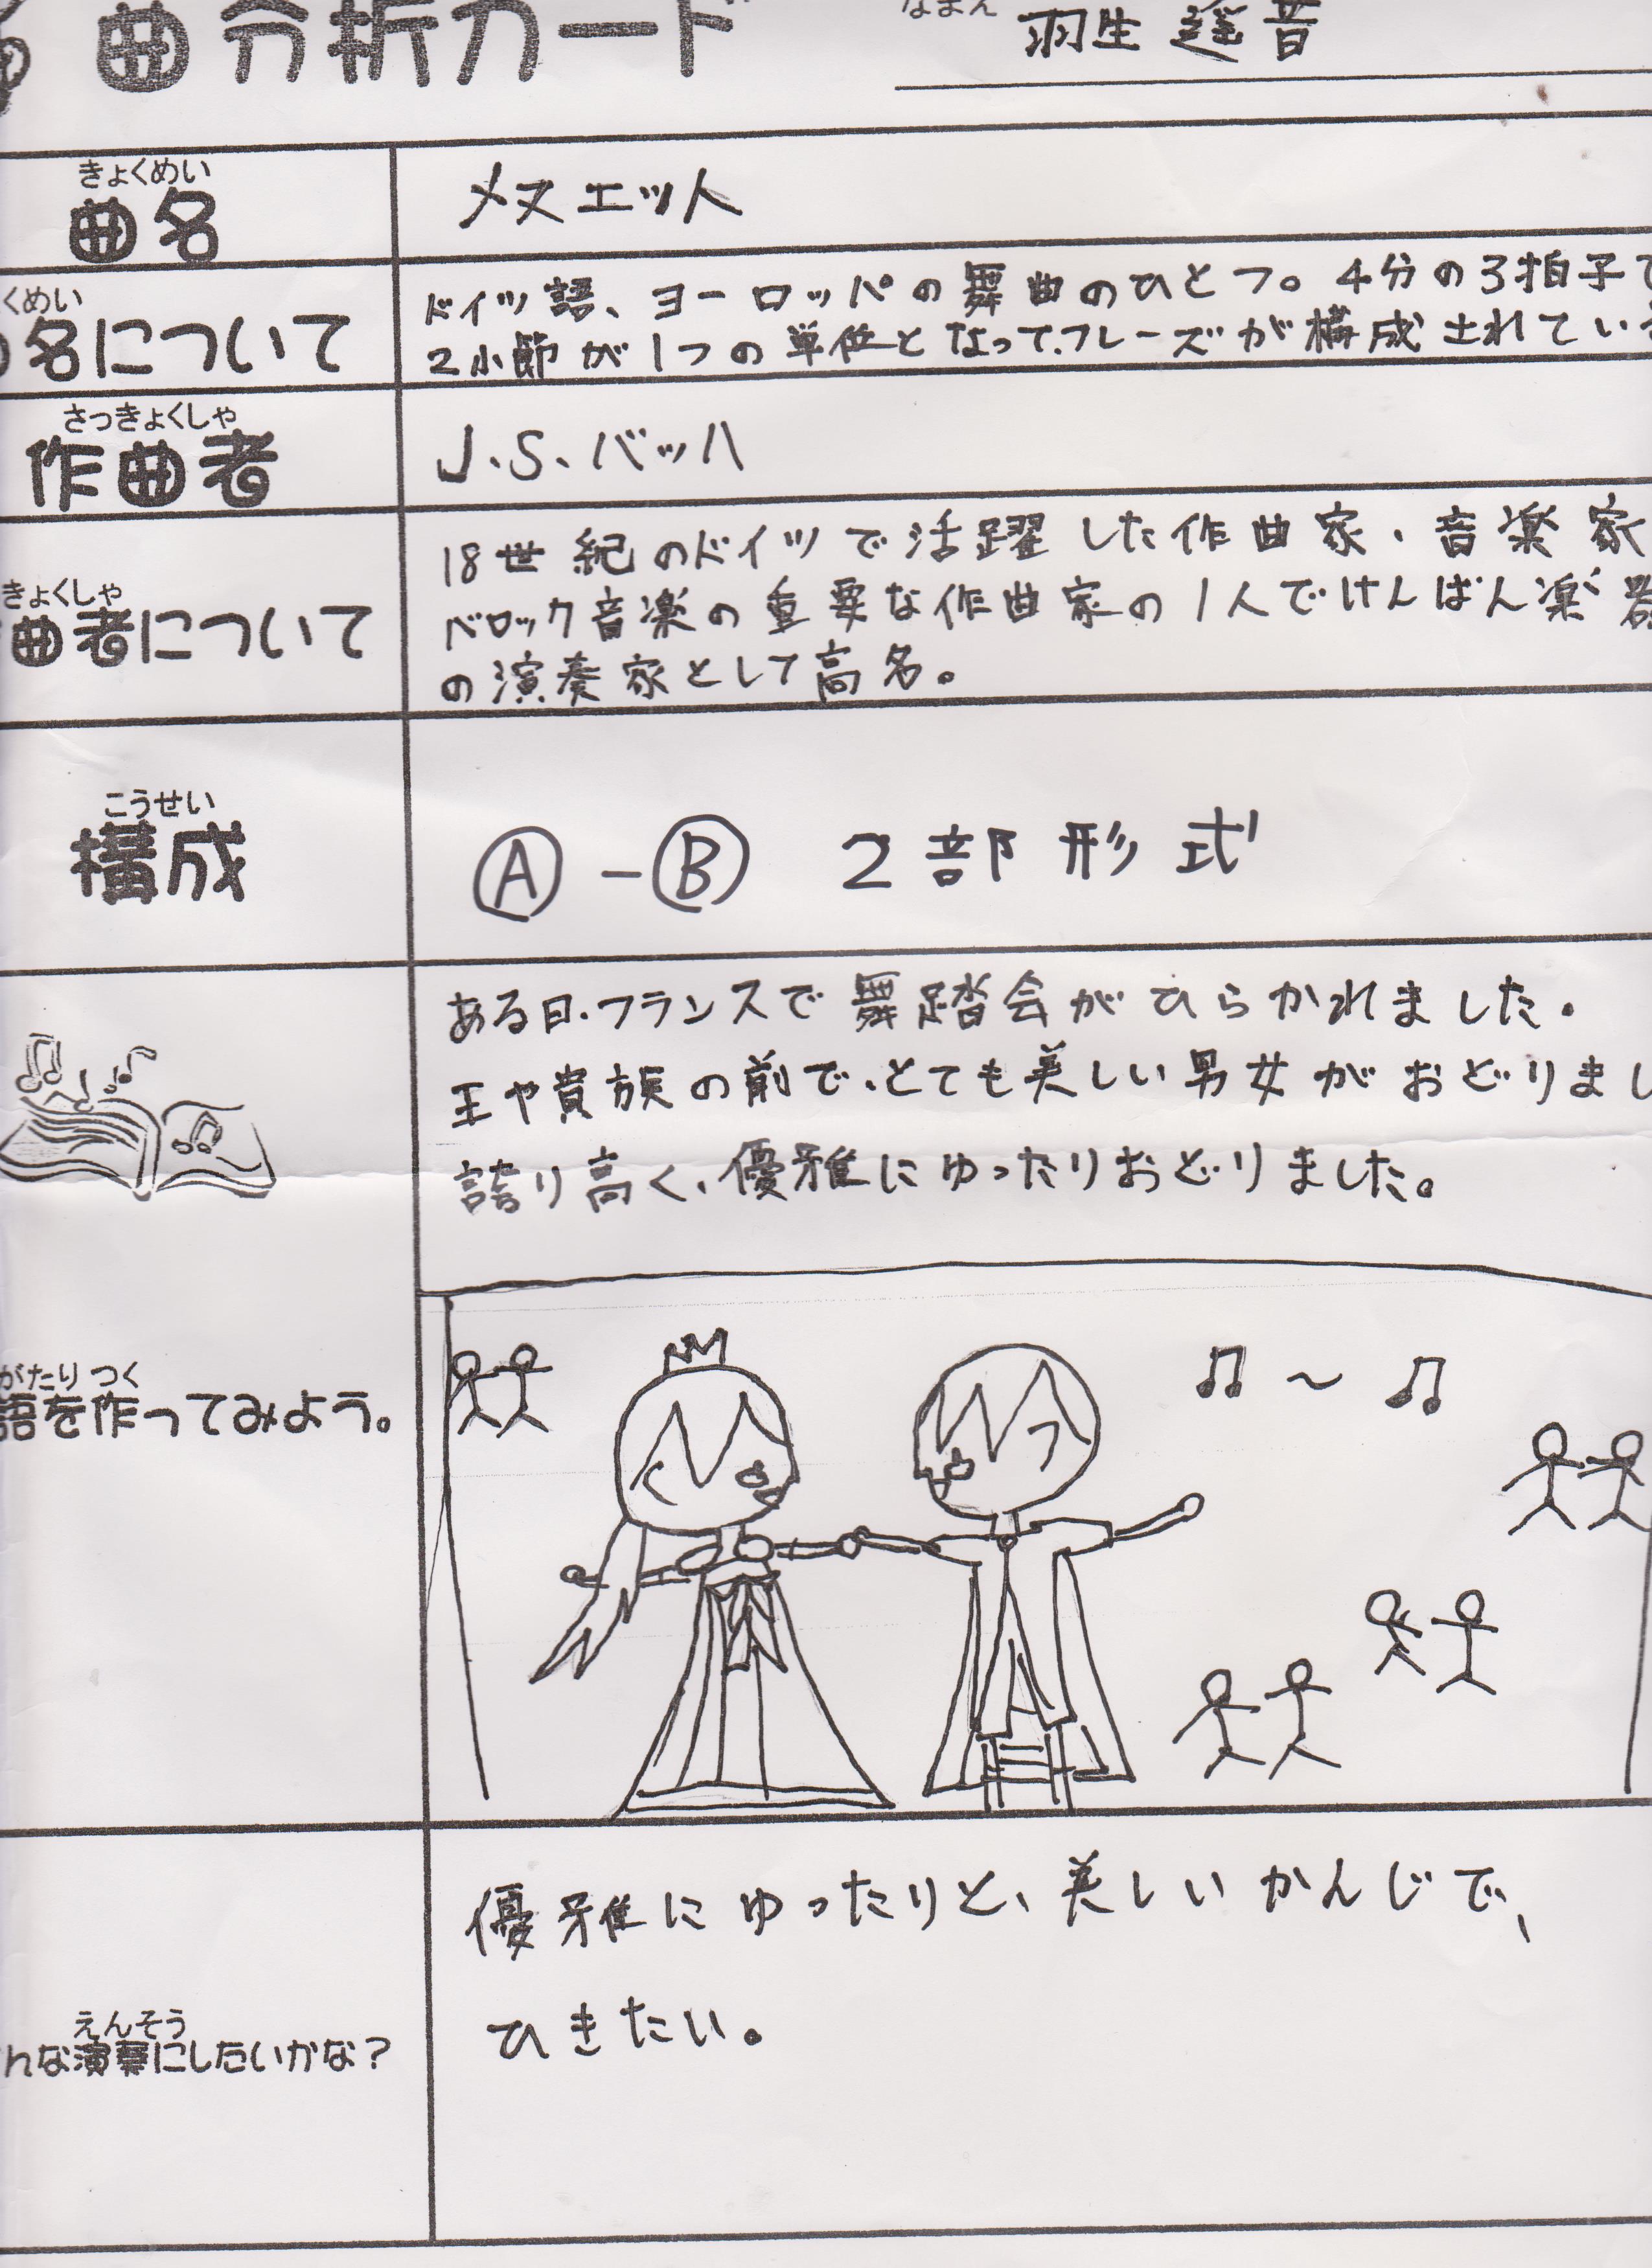 曲分析カード
なまえ
羽生 遥音
きょくめい
曲名
メヌエット
くめい
名について
ドイツ語、ヨーロッパの舞曲のひとつ。4分の3拍子で
2小節が1つの単位となって、フレーズが構成されてい
さっきょくしゃ
作曲者
J.S.バッハ
きょくしゃ
曲者について
18世紀のドイツで活躍した作曲家、音楽家
バロック音楽の重要な作曲家の1人でけんばん楽器
の演奏家として高名。
こうせい
構成
Ⓐ-Ⓑ 2部形式
ある日、フランスで舞踏会がひらかれました。
王や貴族の前で、とても美しい男女がおどりまし
誇り高く、優雅にゆったりおどりました。
がたり つく
語を作ってみよう。
♫~♫
えんそう
んな演奏にしたいかな?
優雅にゆったりと、美しいかんじで、
ひきたい。